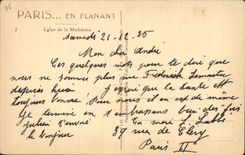 PARIS... EN FLANANT
2 Eglise de la Madeleine
Samedi 21-12-35
Mon cher André
Ces quelques mots pour te dire que
nous ne sommes plus rue Frédérick Lemaitre
depuis hier. J'espère que ta santé est
toujours bonne. Pour nous il en est de même
Je termine en t'embrassant bien des fois
Julien t'envoie
le bonjour
39 rue de Clery
Paris II